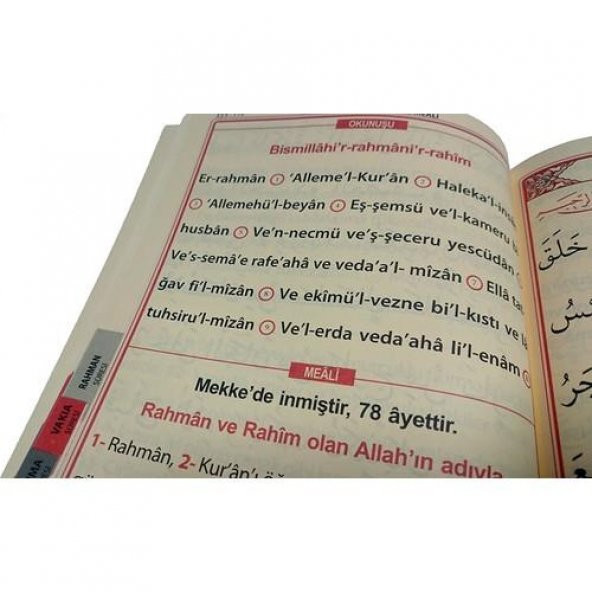 OKUNUŞU
Bismillâhi'r-rahmâni'r-rahîm
Er-rahmân 1 'Alleme'l-Kur'ân 2 Haleka'l-
3 'Allemehü'l-beyân 4 Eş-şemsü ve'l-kameru
husbân 5 Ve'n-necmü ve'ş-şeceru yescüdân
Ve's-semâ'e rafe'ahâ ve veda'a'l- mîzân 7 Ellâ
ğav fi'l-mîzân 8 Ve ekîmü'l-vezne bi'l-kıstı ve
tuhsiru'l-mîzân 9 Ve'l-erda veda'ahâ li'l-enâm
MEÂLİ
Mekke'de inmiştir, 78 âyettir.
Rahmân ve Rahîm olan Allah'ın adıyla
1- Rahmân, 2- Kur'ân'ı
RAHMAN
SÛRESİ
VAKIA
SÛRESİ
خَلَقَ